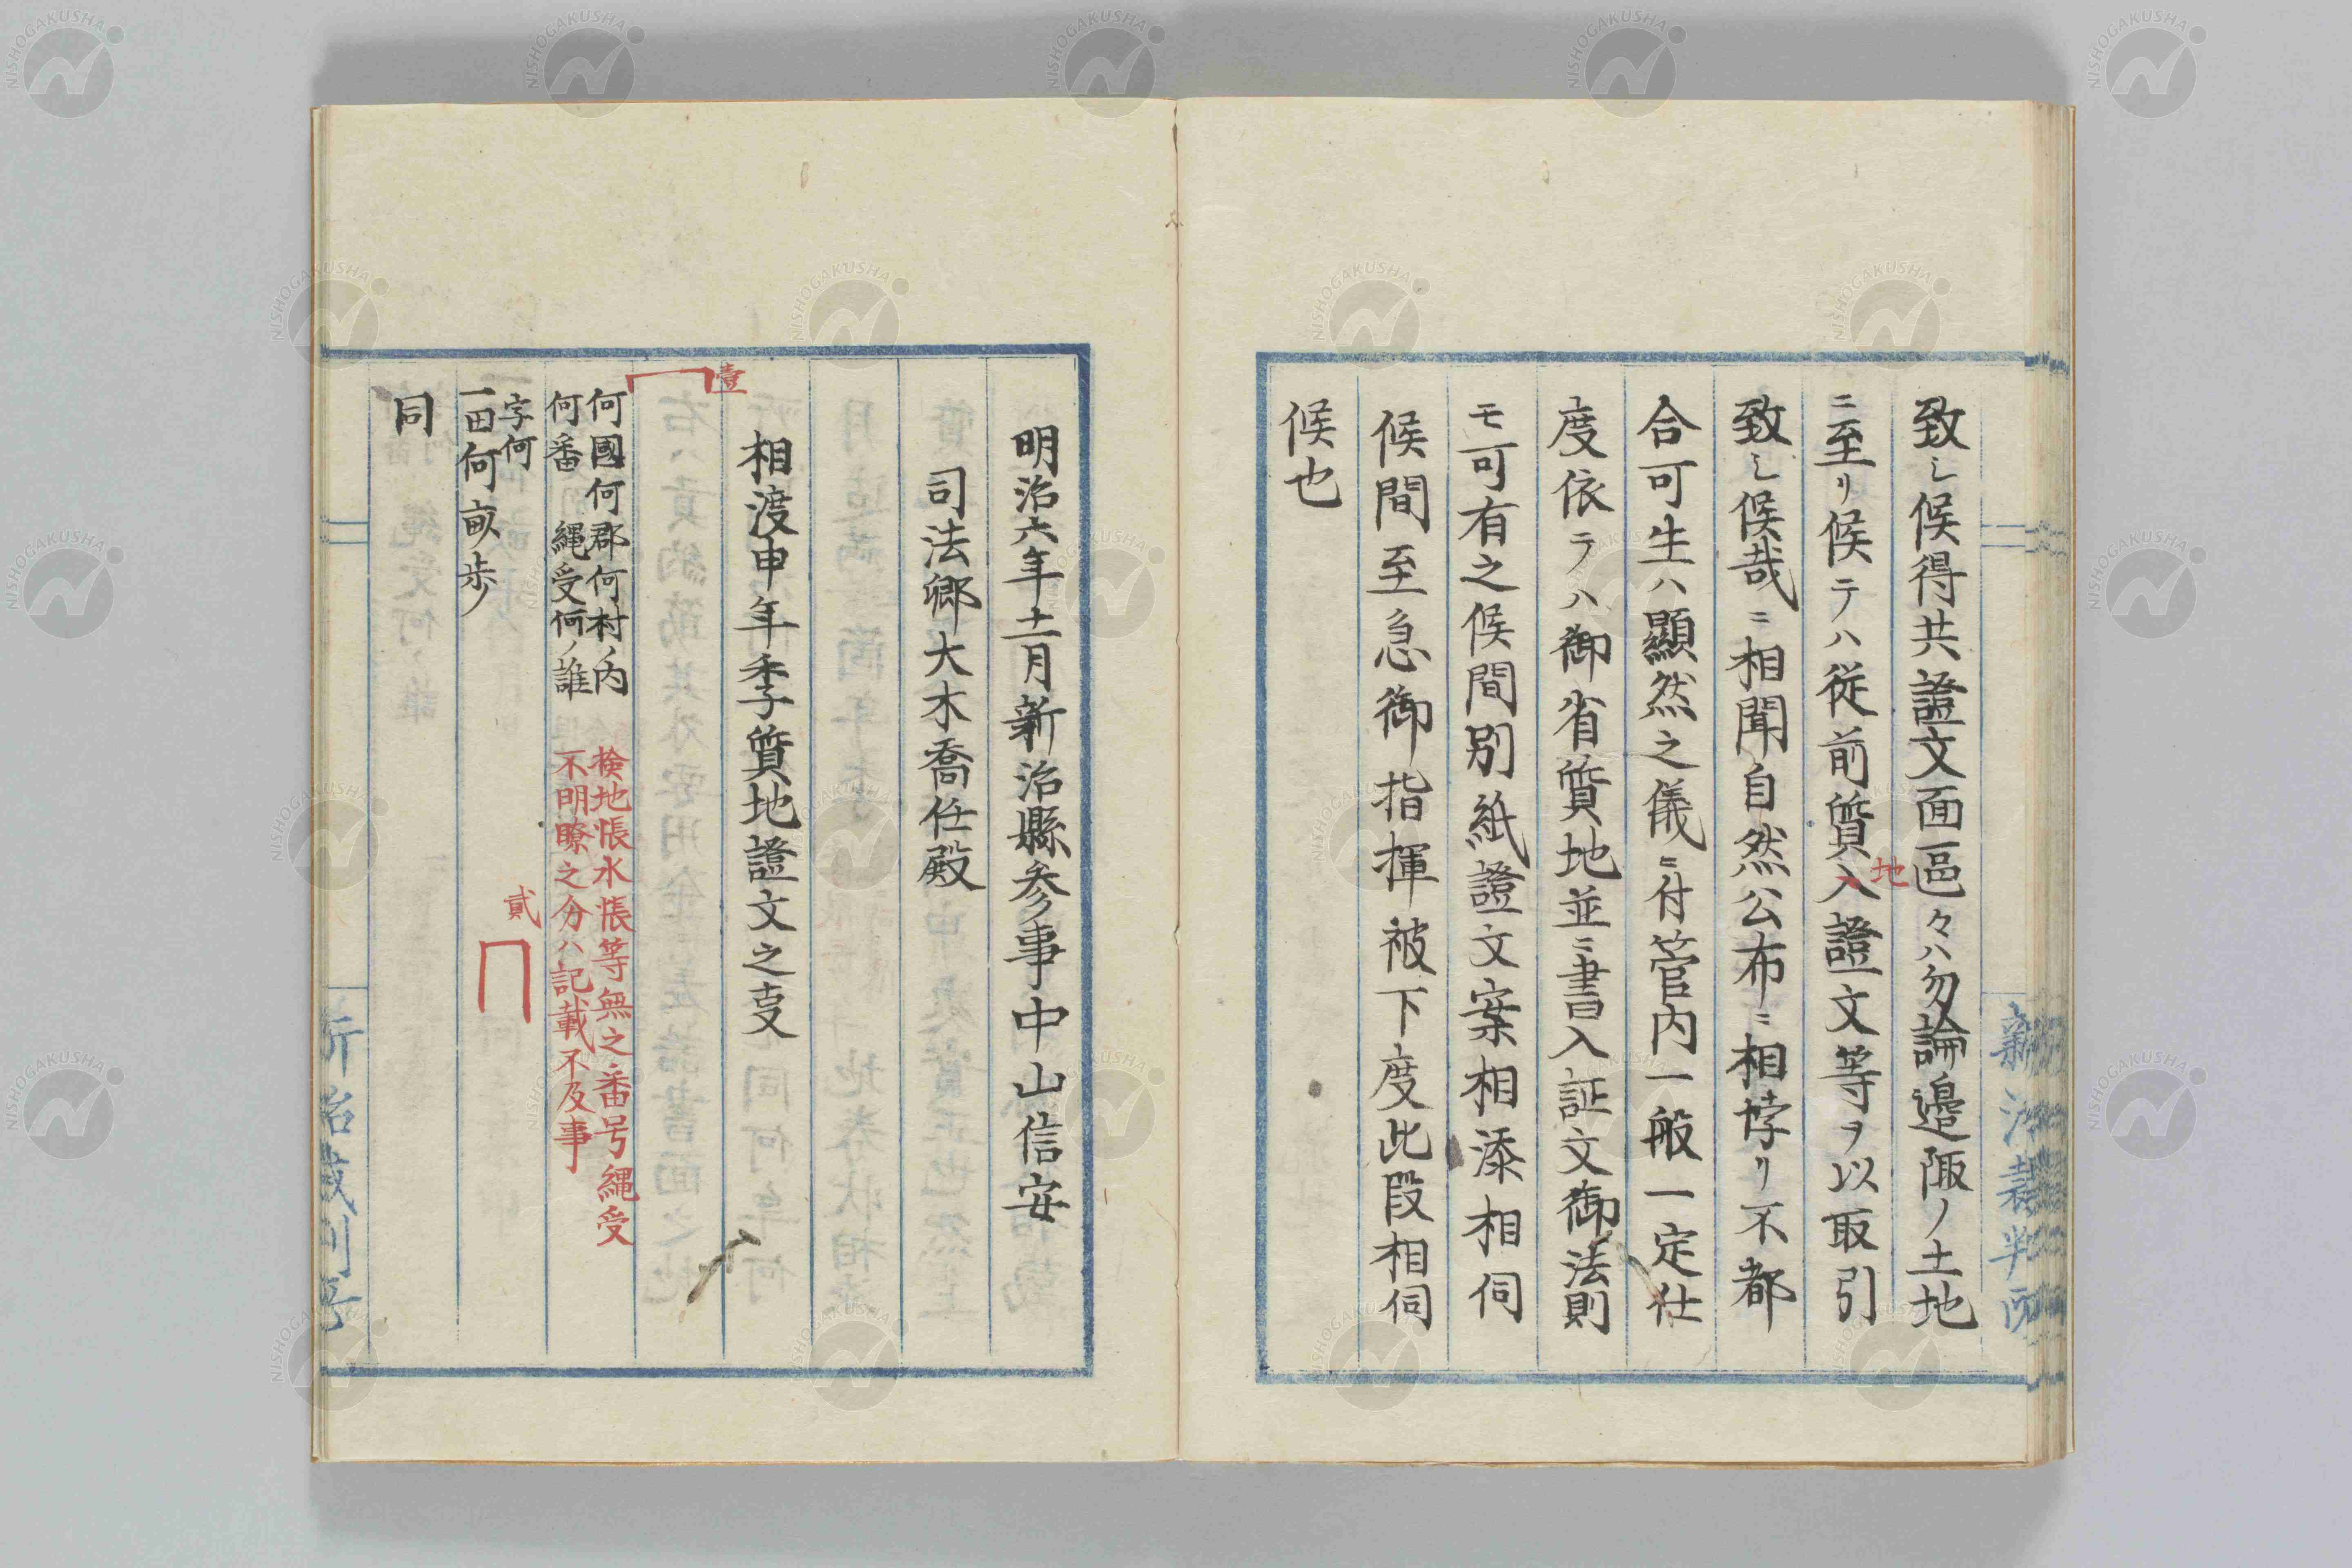 致シ候得共證文面區々ハ勿論邉陬ノ土地
ニ至リ候テハ従前質入證文等ヲ以取引
地
致シ候哉ニ相聞自然公布ニ相悖リ不都
合可生ハ顯然之儀ニ付管内一般一定仕
度依テハ御省質地並ニ書入証文御法則
モ可有之候間別紙證文案相添相伺
候間至急御指揮被下度此段相伺
候也
新治裁判所
明治六年十二月新治縣参事中山信安
司法卿大木喬任殿
相渡申年季質地證文之㕝
壹
何國何郡何村ノ内
何番 縄受何ノ誰
検地帳水帳等無之番号縄受
不明瞭之分ハ記載不及事
字何
一田何畝歩
貳
同
新治裁判所
NISHOGAKUSHA